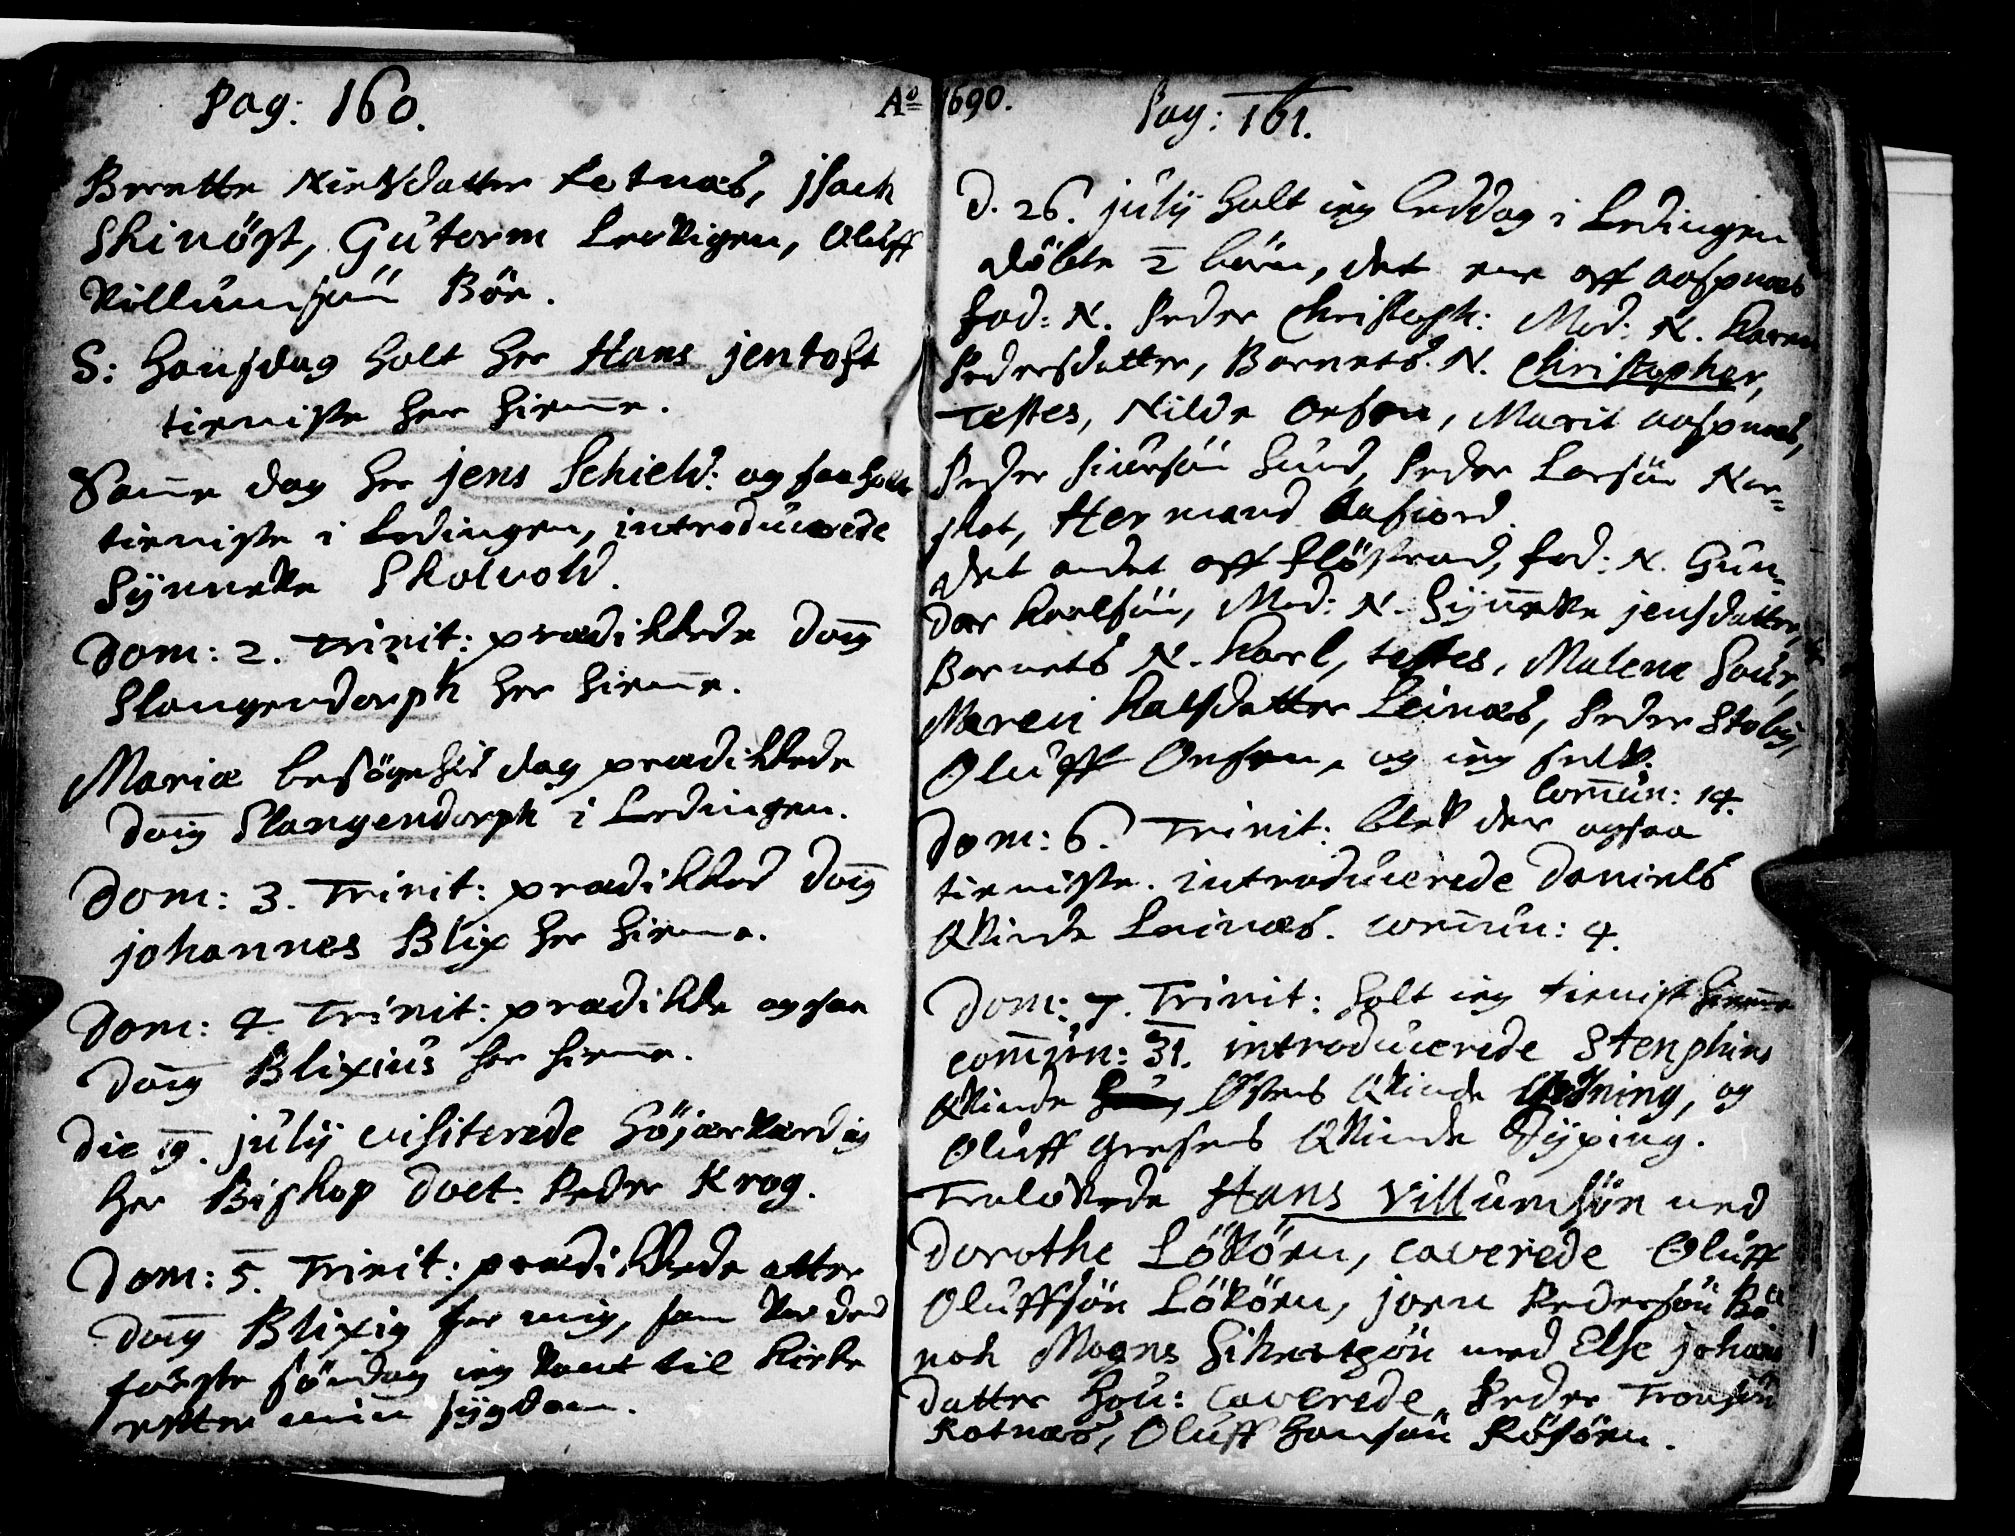 Pag: 160.
Berette Nielsdatter Retnæs, jsach
Skinöst, Gutorm Levigen, Oluff
Villumsøn Böe.
S: Hansdag holt her Hans jentoft
tieniste her hieme.
Same dag her jens Schield: og saa holt
tieniste i Lodingen, introducerede
Synneve Skotvold.
Dom: 2. Trinit: prædikkede Doig
Slangendorph her hieme.
Mariæ besögelsis dag prædikkede
Doig Slangendorph i Lødingen.
Dom: 3. Trinit: prædikked Doig
johannes Blix her hieme.
Dom: 4. Trinit: prædikke ogsaa
Doig Blixius her hieme.
Die 19. julij visiterede Höjærværdig
her Bishop Doct: Peder Krog.
Dom: 5. Trinit: prædikkede atter
Doig Blixig for mig, som var ded
förste söndag ieg komt til kirke
epter min sygdom.
Aº 1690.
Pag: 161.
D. 26. julij holt ieg beddag i Lødingen
döbte 2 börn, det ene aff aaspnæs
Fad: N. Peder Christoph: Mod: N. Karen
Pedersdatter, Barnets N. Christopher,
Testes, Nilde Oefsen, Marit aaspnæs,
Peder Siursön Sund, Peder Larsön Nor=
skot, Hermand Kafiord.
Det andet aff Flöstrand, Fad: N. Gun=
dar Karlsön, Mod: N. Synneve jensdatter,
Barnets N. Karl, testes, Malene Hour,
Maren Halsdatter Leinæs, Peder Stoby,
Oluff Oefsen, og ieg selv.
comun: 14.
Dom: 6. Trinit: blef der ogsaa
tieniste. introducerede Daniels
Qvinde Leinæs. comun: 4.
Dom: 7. Trinit: holt ieg tienist hieme
comun: 31. introducerede Stenphins
Qvinde Østens Qvinde og
Oluff Gresens Qvinde Dyping.
Trolovede Hans Villumsön med
Dorothe Lökören, caverede Oluff
Oluffsön Lökören, joen Pedersön Bö.
nok Mogns Sivertsön med Else johans
datter Hou: caverede Peder Tronsön
Rotnæs, Oluff Hansön Rösören.